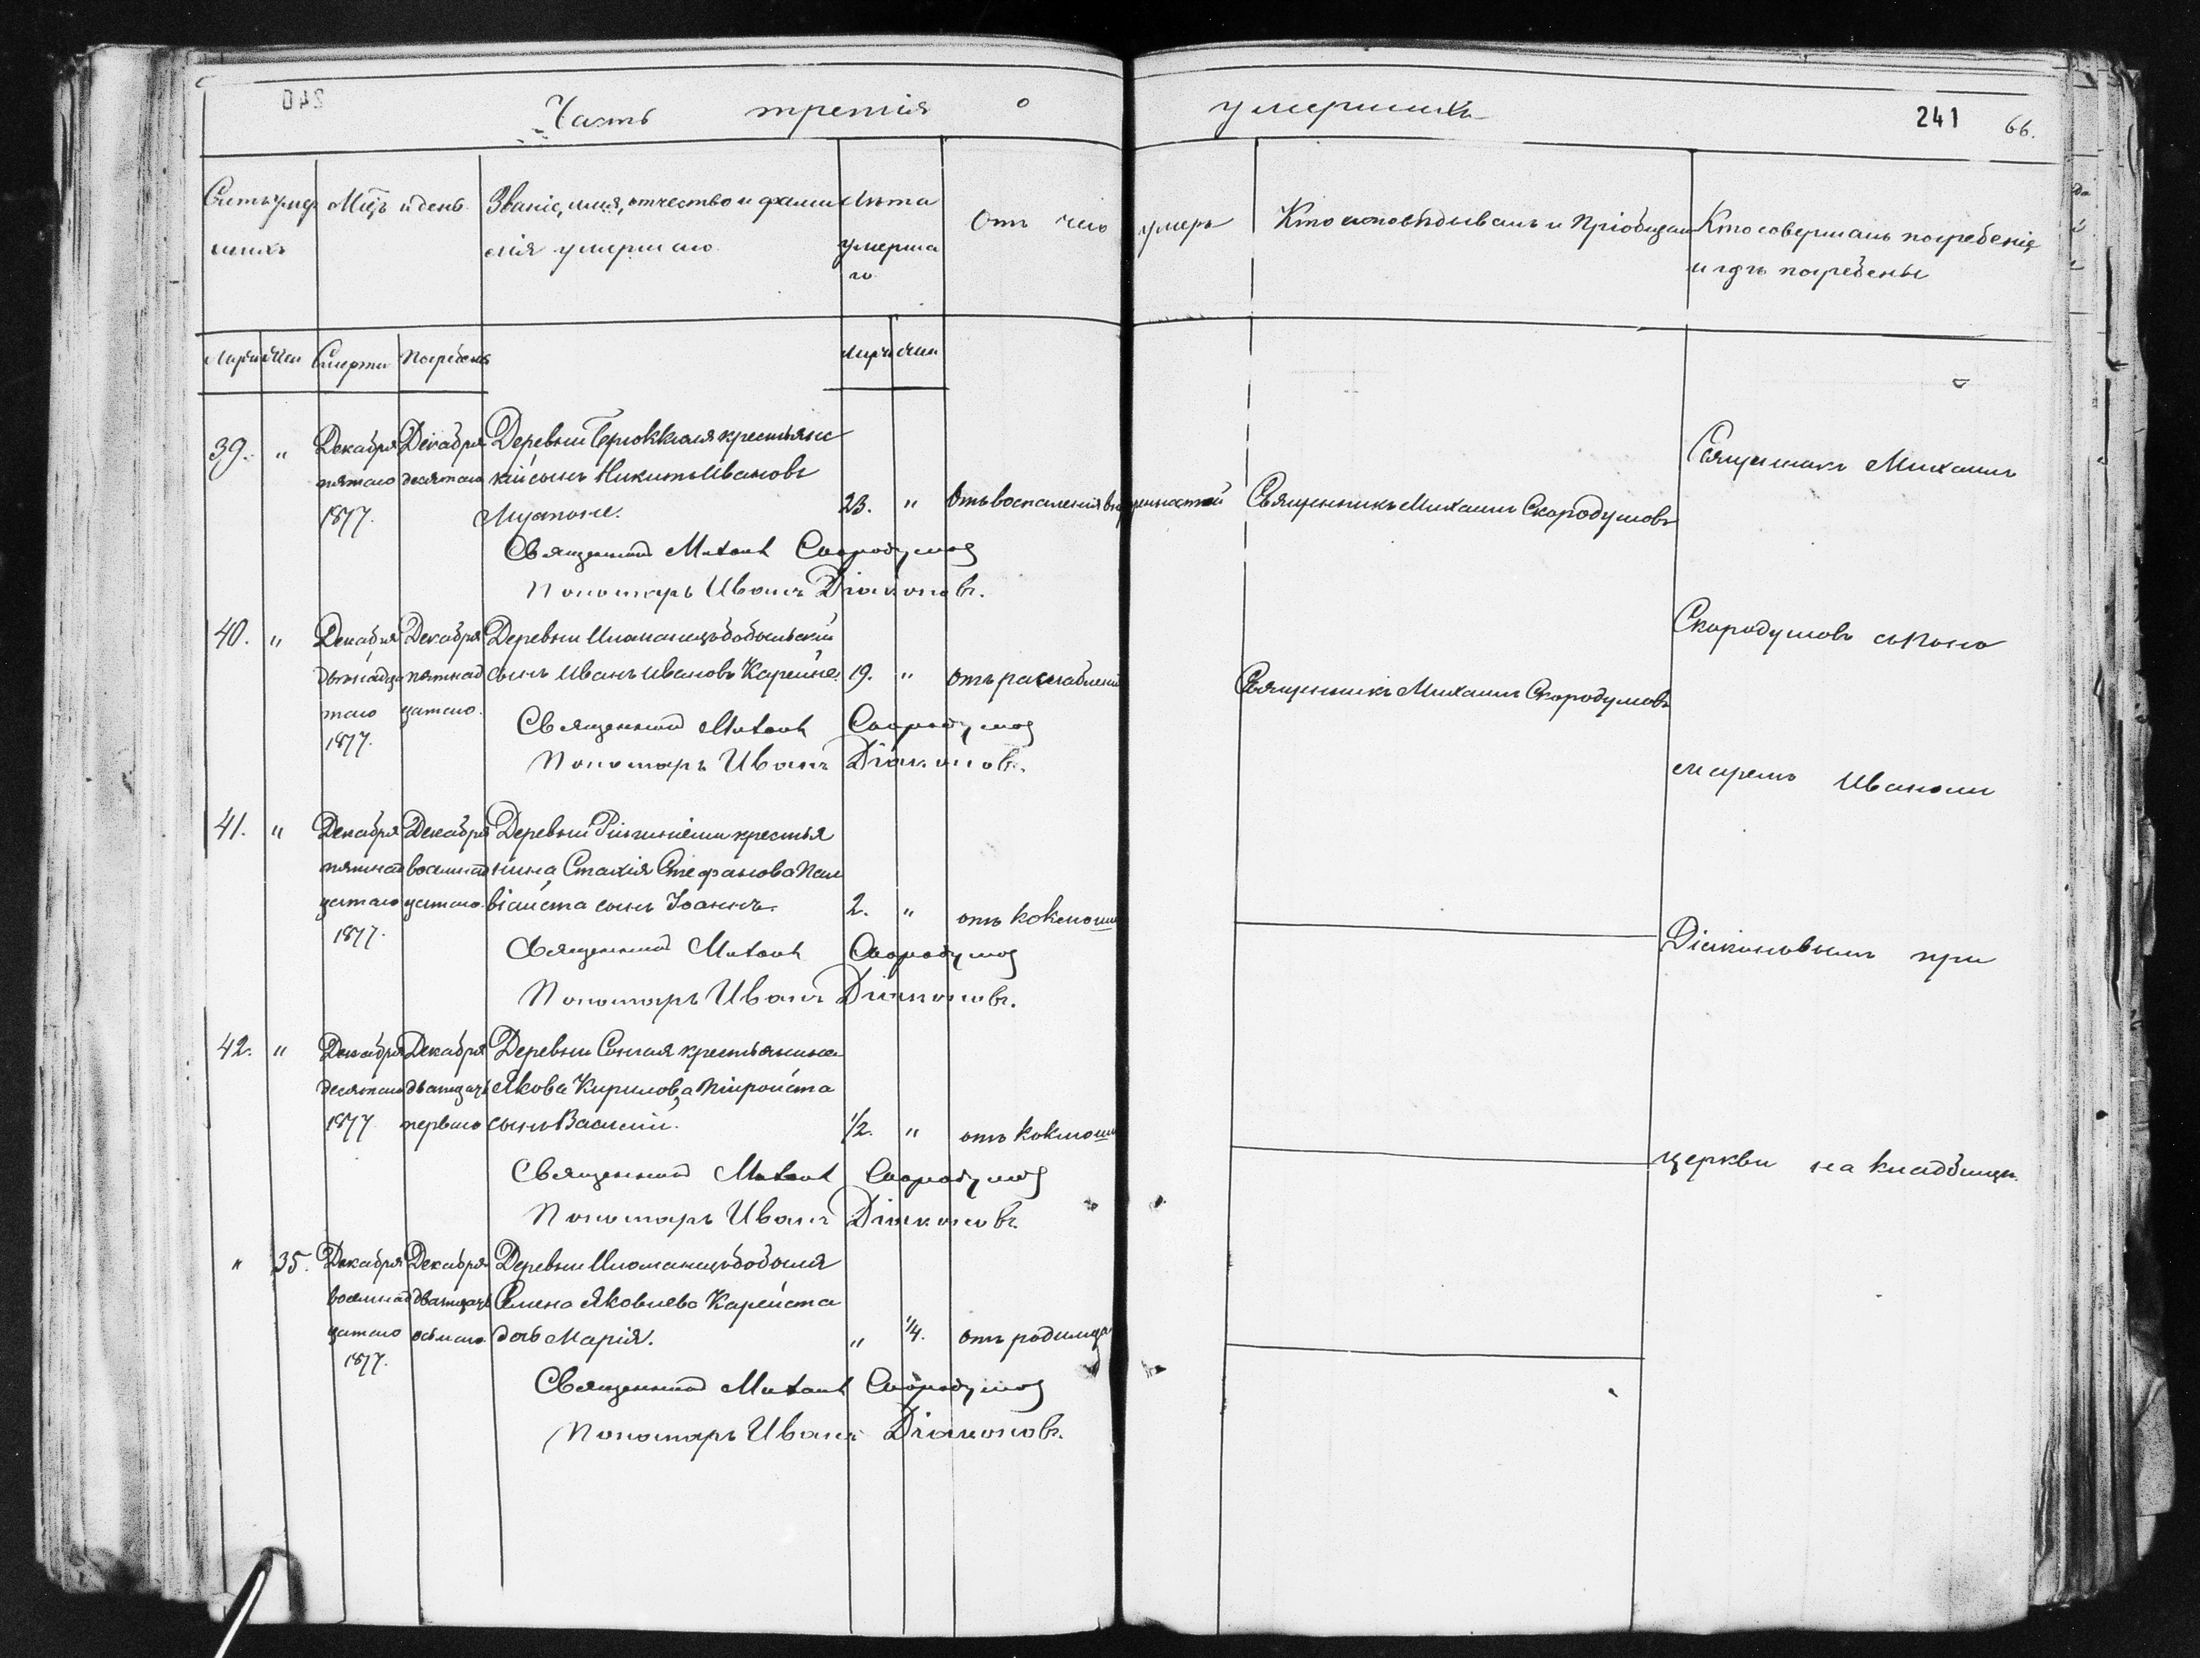 Часть третія о умершихъ
241
66.
Счетъ умер
шихъ
Мѣцъ и день
Званіе, имя, отчество и фами
лія умершаго
Лѣта
умерша
го
Отъ чего умеръ
Кто исповѣдывалъ и пріобщалъ
Кто совершалъ погребеніе
и гдѣ погребены
Смерти
Погребенія
39. "
Декабря
пятаго
1877.
Декабря
десятаго
крестьянс
кій сынъ Никита Ивановъ
23. "
Отъ воспаленія внутренностей
Священникъ Михаилъ Скородумовъ
Священникъ Михаилъ Скородумовъ
Пономарь Иванъ Діаконовъ.
40. "
Декабря
двѣнадца
таго
1877.
Декабря
пятнад
цатаго.
Деревни Иломанецъ бобыльскій
сынъ Иванъ Ивановъ
19. "
отъ разслабленія
Священникъ Михаилъ Скородумовъ
Священникъ Михаилъ Скородумовъ
Пономарь Иванъ Діаконовъ.
41. "
Декабря
пятнад
цатаго
1877.
Декабря
восемнад
цатаго.
Деревни крестья
нина Стахія Стефанова
сынъ Іоаннъ.
2. "
отъ коклюша
Священникъ Михаилъ Скородумовъ
Пономарь Иванъ Діаконовъ.
42. "
Декабря
десятаго
1877
Декабря
двадцать
перваго
Деревни крестьянина
Якова Кирилова
сынъ Василій.
1/2. "
отъ коклюша
Священникъ Михаилъ Скородумовъ
Пономарь Иванъ Діаконовъ.
" 35.
Декабря
восемнад
цатаго
1877.
Декабря
двадцать
осьмаго.
Деревни Иломанецъ бобыля
Семена Яковлева
дочь Марія.
" 1/4.
отъ родимца
Священникъ Михаилъ Скородумовъ
Пономарь Иванъ Діаконовъ.
Священникъ Михаилъ
Скородумовъ съ поно
маремъ Иваномъ
Діаконовымъ при
церкви на кладбищѣ.